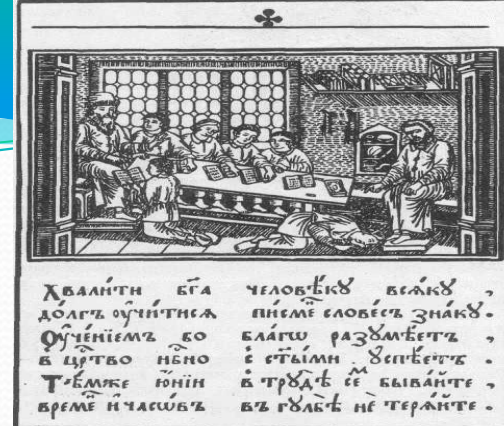 Хвали́ти бг҃а человѣ́кꙋ всѧ́кꙋ ,
до́лгъ ᲂу҆чи́тисѧ писме́ слове́съ зна́кꙋ .
Оу҆че́нїемъ бо бла́гѡ разꙋмѣ́етъ ,
в црⷭ҇тво нб҃но с ст҃ы́ми ᲂу҆спѣ́етъ .
Тѣ́мже ю҆́нїи в трꙋдѣ̀ сем быва́йте ,
времѐ и҆ часѡ́въ въ гꙋлбѣ̀ не терѧ́йте .